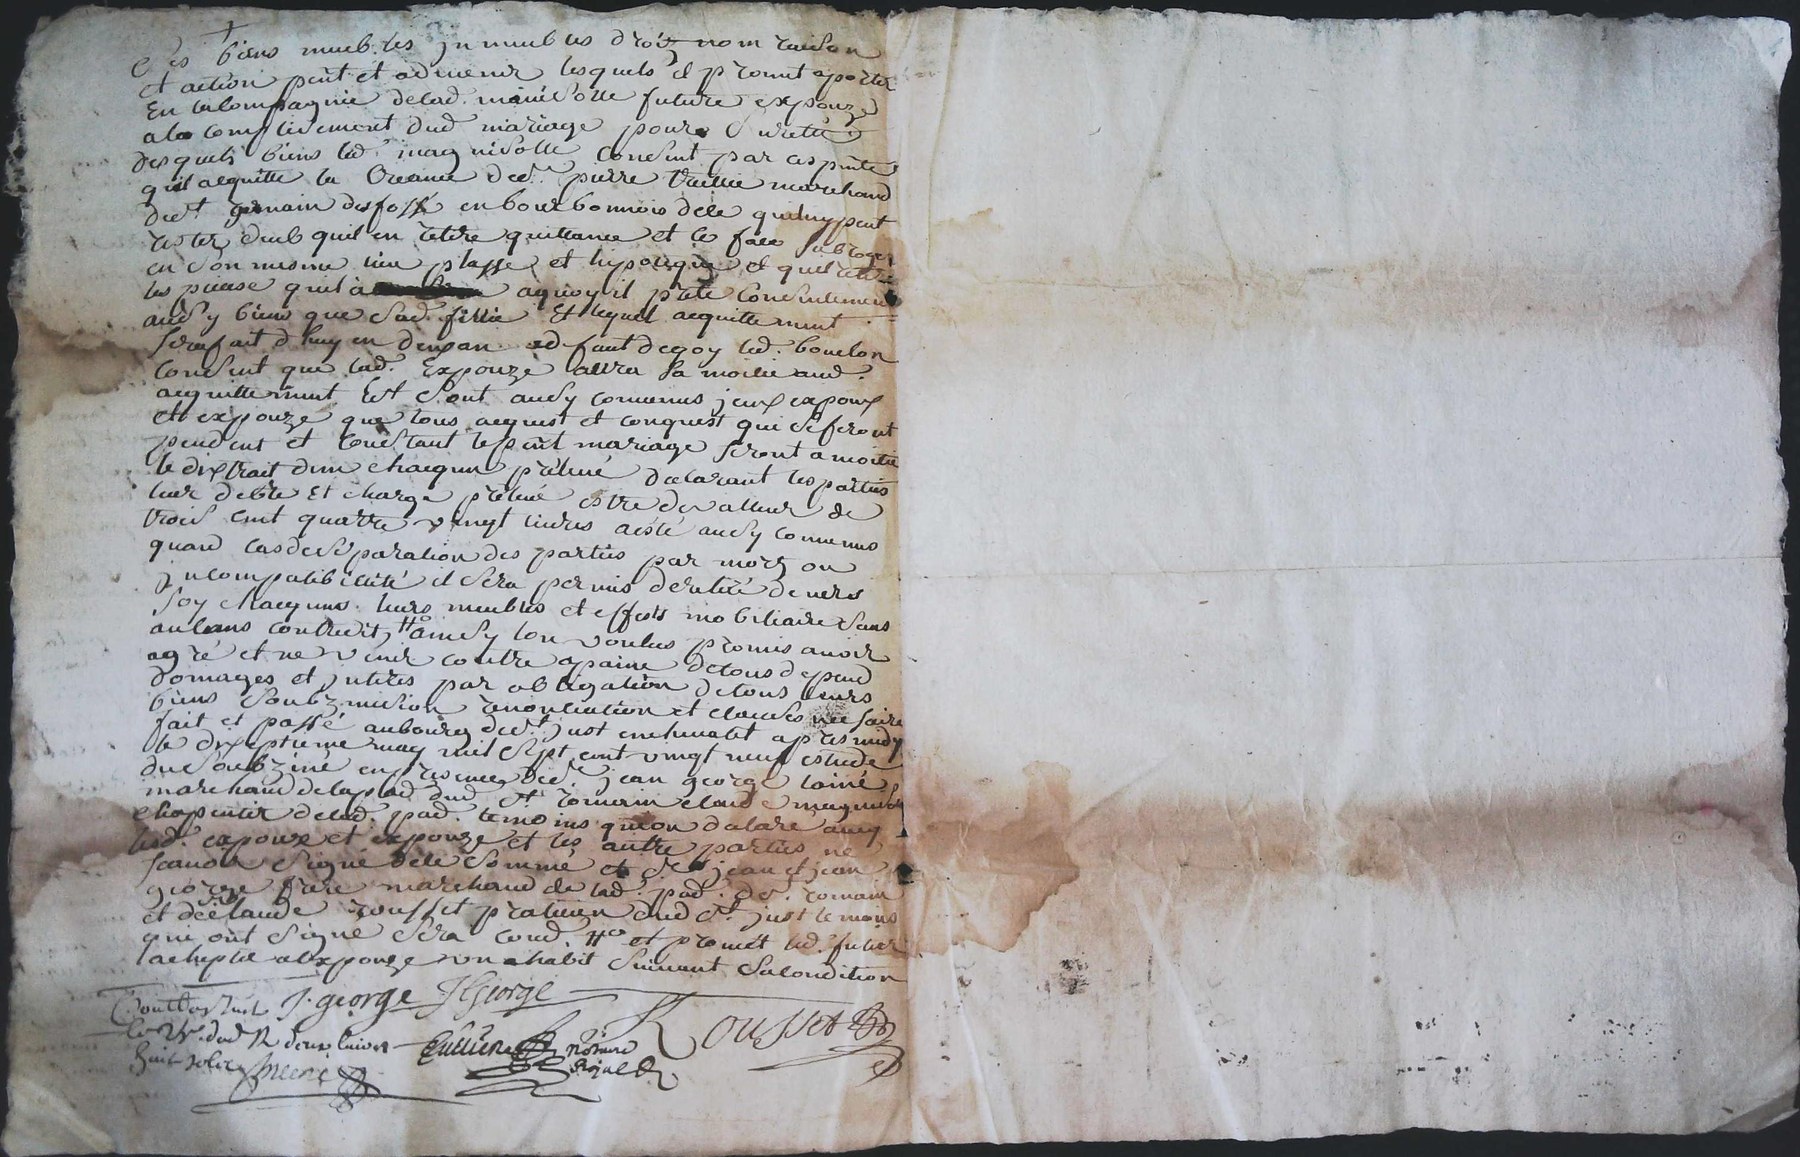 ses biens meubles jnmeubles droiz nom raison
et action pnt et advenir lesquels il promt aporter
En la Compagnie de lad. manisolle future expouze
a la complissement dud mariage pour surtté
desquels biens led. magnisolle Consent par ces pntes
quil acquitte la Creance de sr. pierre marchand
de st germain des fossé en bourbonnois de ce quil luy peut
rester deub quil en retire quittance et se face subroger
en son mesme lieu plasse et hipoteque et quil
les puisse a quoy il prete Consentement
aussy bien que sad. fillie Et lequel acquittement
sera fait dhuy en deux an ad faut de quoy led. bouclon
Consent que lad. Expouze aura sa moitié aud.
acquittement Est sont aussy convenus jceux expoux
et expouze que tous acquest et conquest qui se feront
pendent et Constant le pnt mariage seront a moitié
le distrait dun chaqun prelevé declarant les parties
leur debte Et charge prelevé estre de valleur de
trois cent quattre vingt livres a esté aussy convenus
quand cas de separation des parties par mort ou
jncompatibillité il sera permis de retiré devers
soy chacquns leurs meubles et effests mobiliaire sans
aucuns contredit, ainsy lon voulus promis avoir
agré et ne venir contre a paine de tous depend
domages et jnterest par obligation de tous leurs
biens soubzmission renonciation et clauses necessaire
fait et passé au bourg de st. just en chevalet apres midy
le dixseptieme may mil sept cent vingt neuf estude
du soubziné en presence de sr. jean george lainé
marchand de la pad dud. st romain claude magnisolle
chapentier de lad. pad. temoins quon declaré avec
lesd. expoux et expouze et les autre parties ne
scavoir signé de ce sommé et sr. jean et jean
george frere marchand de lad. pad. de st. romain
et de claude rousset praticien dud st. just temoins
qui ont signé sera Cond. et promet led. futur
lachepte a lexpouze un habit suivant sa condition
J. george JGeorge
Rousset
notaire
Royal